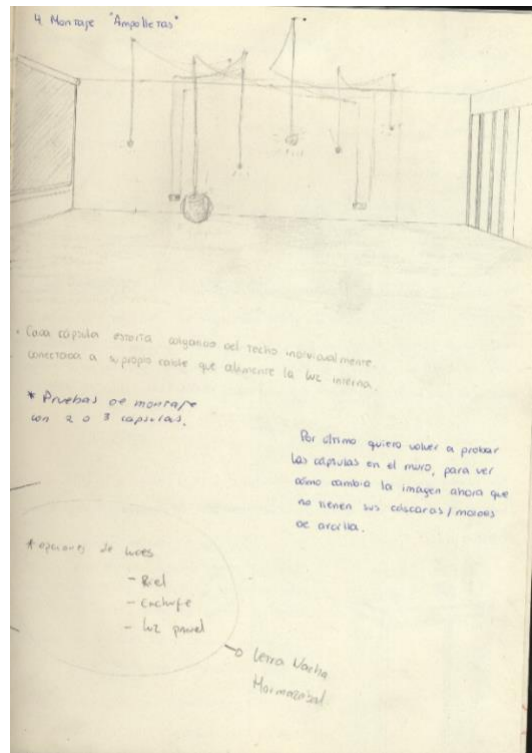 4. Montaje "Ampolletas"
• Cada cápsula estaría colgando del techo individualmente
conectada a su propio cable que alimente la luz interna.
* Pruebas de montaje
con 2 o 3 cápsulas.
Por último quiero volver a probar
las cápsulas en el muro, para ver
cómo cambia la imagen ahora que
no tienen sus cáscaras/moldes
de arcilla.
* opciones de luces
- Riel
- Enchufe
- luz panel
Letra Nacha
Mormazabal